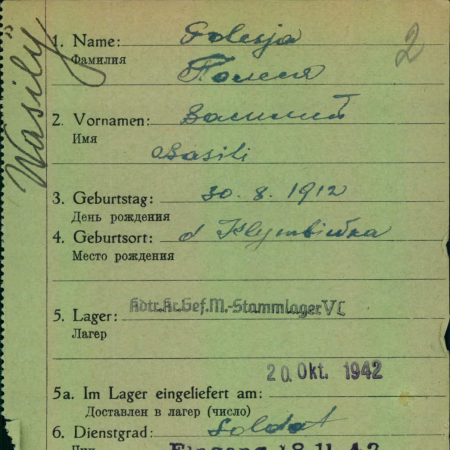 Wasily
2
1. Name: Polesja
Фамилия Полеся
2. Vornamen: Василий
Имя
Basili
3. Geburtstag: 30. 8. 1912
День рождения
4. Geburtsort: d
Место рождения
Kdtr.Kr.Gef.M.-Stammlager VI
5. Lager:
Лагер
20. Okt. 1942
5a. Im Lager eingeliefert am:
Доставлен в лагер (число)
6. Dienstgrad: Soldat
Чин